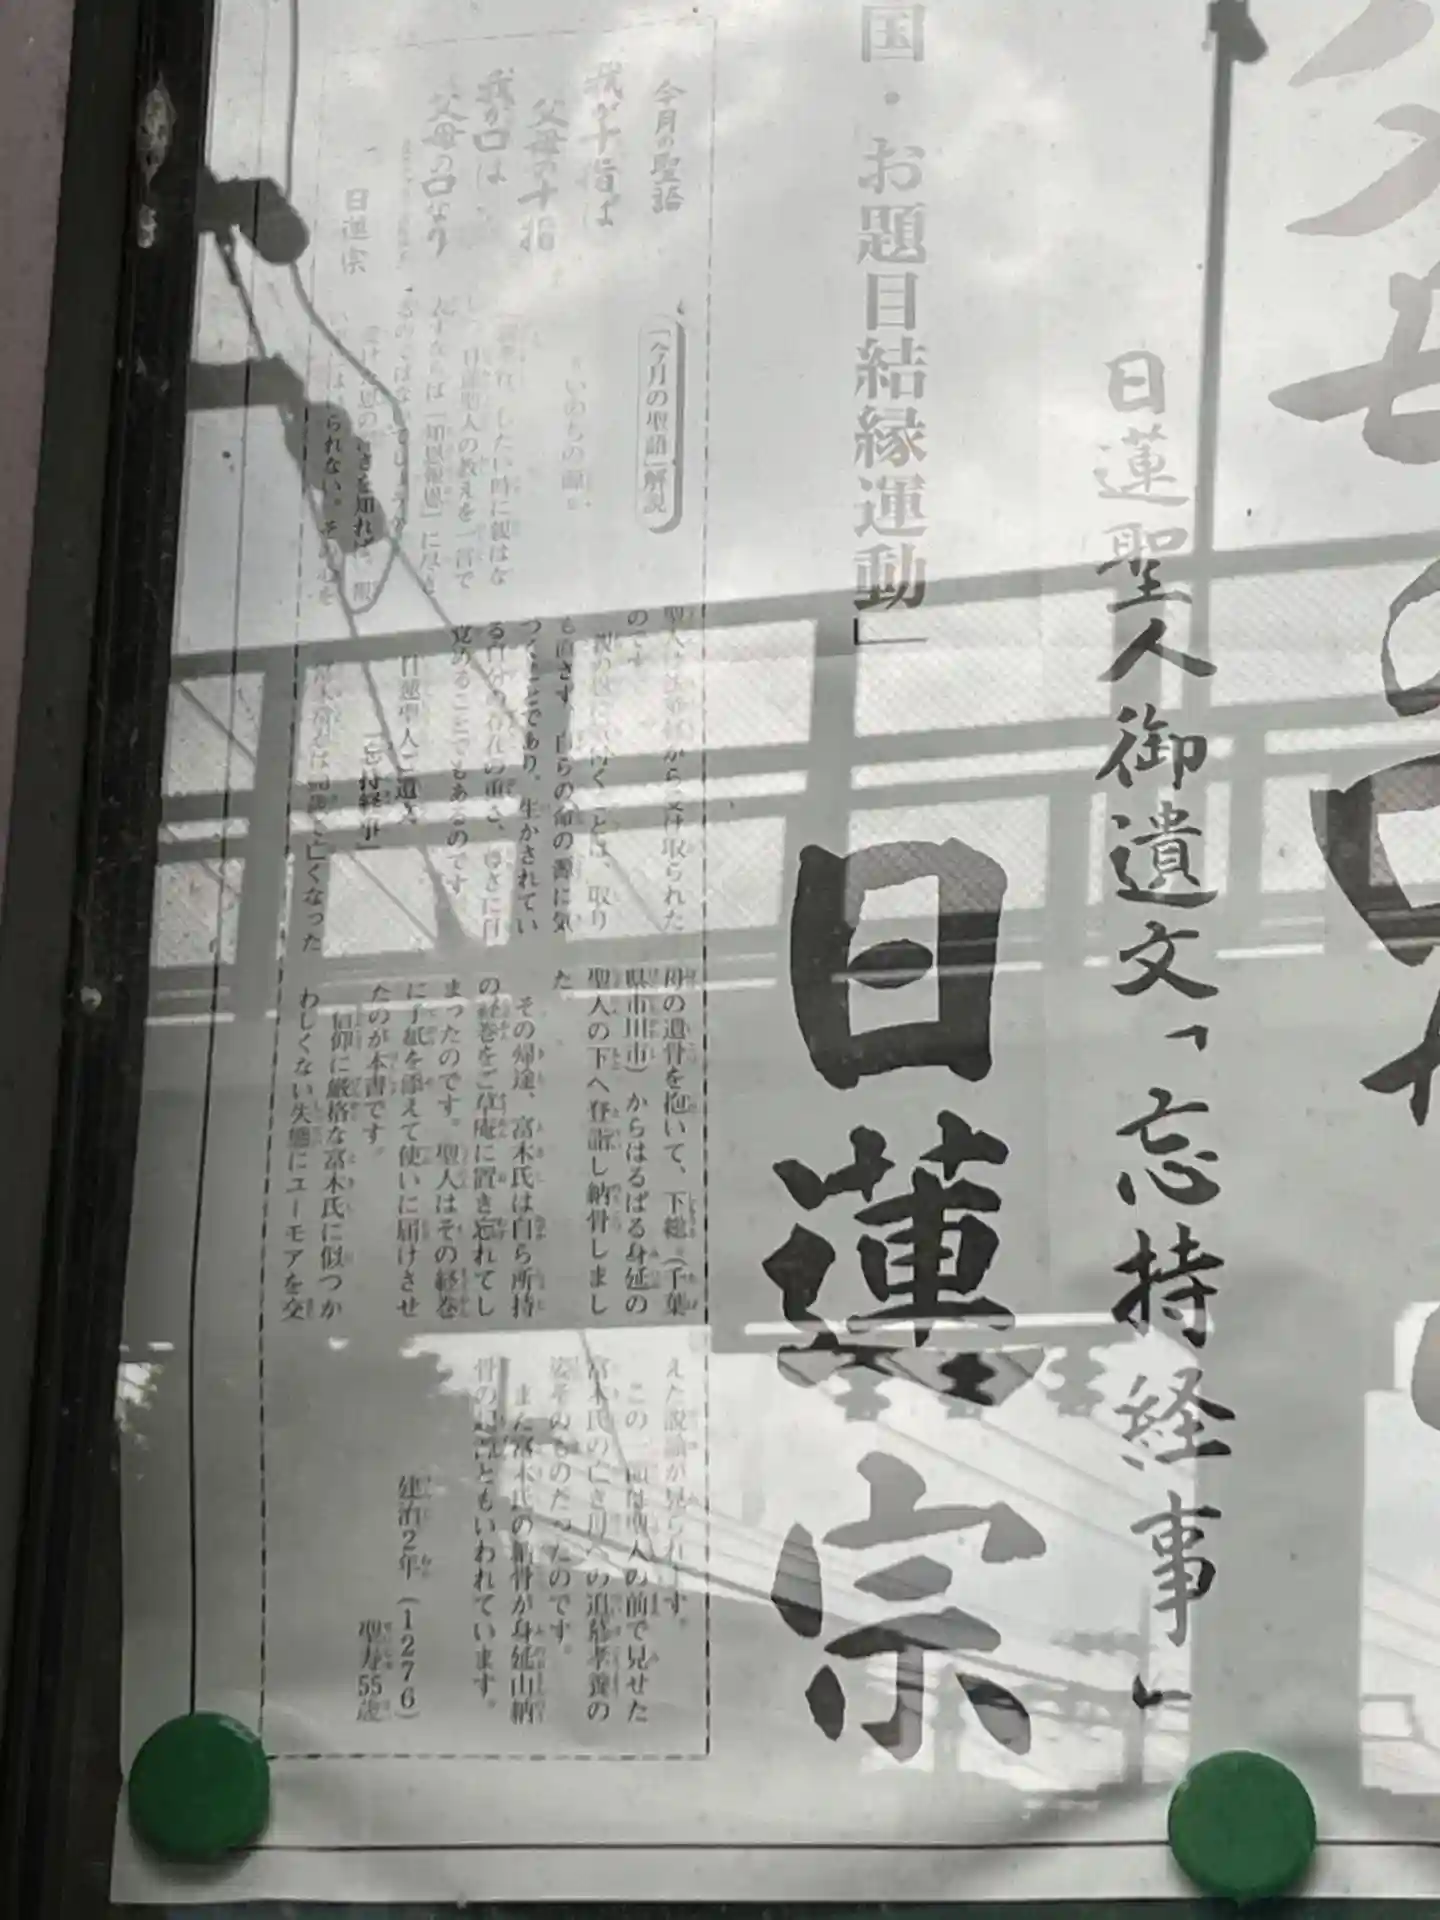 日蓮聖人御遺文「忘持経事」
国・お題目結縁運動」
日蓮宗
今月の聖語
我が十指は
父母の十指
我が口は
父母の口なり
日蓮宗
「今月の聖語」解説
いのちの源
したい時に親はな
日蓮聖人の教えを一言で
「知恩報恩」に尽き
を知れば、報
はいられない。その心を
聖人は法華経から受け取られた
のです。
親の恩に気付くことは、取り
も直さず、自らの命の源に気
つくことであり、生かされてい
る自分の存在の重さ、尊さに目
覚めることでもあるのです
日蓮聖人ご遺文
「忘持経事」
富木常忍は90歳で亡くなった
母の遺骨を抱いて、下総(千葉
県市川市)からはるばる身延の
聖人の下へ登詣し納骨しまし
た。
その帰途、富木氏は自ら所持
の経巻をご草庵に置き忘れてし
まったのです。聖人はその経巻
に手紙を添えて使いに届けさせ
たのが本書です。
信仰に厳格な富木氏に似つか
わしくない失態にユーモアを交
えた説諭が見られます。
この一節は聖人の前で見せた
富木氏の亡き母への追慕孝養の
姿そのものだったのです。
また富木氏の納骨が身延山納
骨の起源ともいわれています。
建治2年(1276)
聖寿55歳